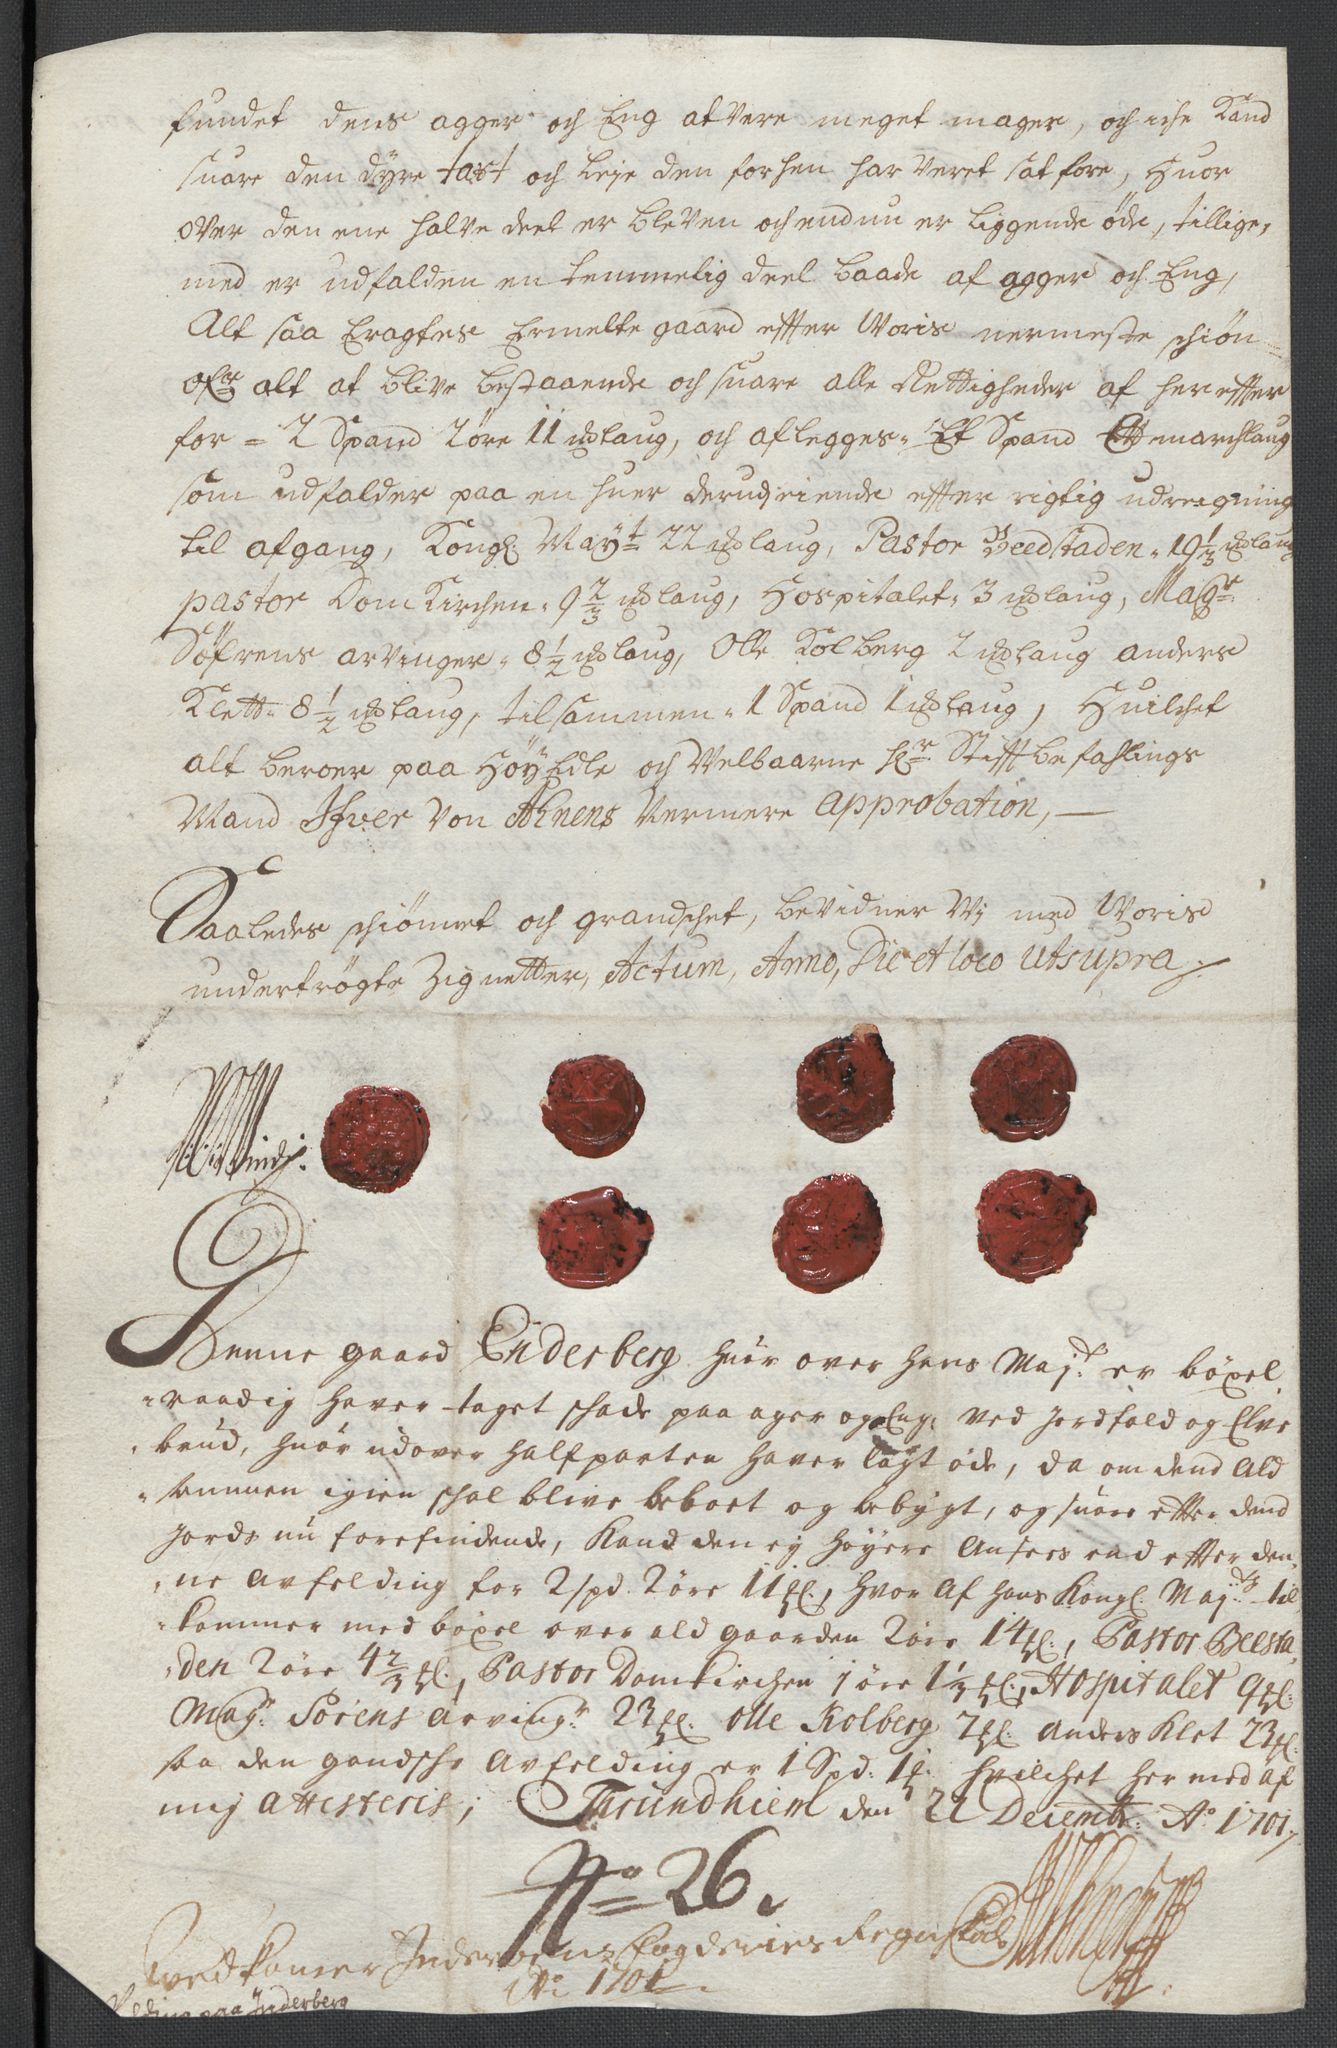 fundet dens agger och Eng at vere meget mager, och iche Kand
suare den dyre taxt och Leje den forhen har veret sat fore, Huor
over den ene halve deel er bleven och endnu er liggende öde, tillige,
med er udfalden en temmelig deel baade af agger och Eng,
Alt saa Eragtes Ermelte gaard effter Woris nermeste schiön
alt at blive bestaaende och suare alle Rettigheder af her effter
for = 2 Spand 2 öre 11 laug, och aflegges. Et Spand Ett marchlaug
som udfalder paa en huer derudj eiende effter rigtig udregning
til afgang, Kongl: Mayt 22 laug, Pastor Beedstaden. 19⅓ laug
pastor Dom Kirchen. 9⅔ laug, Hospitalet. 3 laug, Magr
Söfrens arvinger. 8½ laug, Olle Kolberg 2 laug anders
Klett. 8½ laug, tilsammen. 1 Spand 1 laug, Huilchet
alt beroer paa HöyEdle och Velbaarne Hr Stifftbefahlings
Mand Ifver Von Ahnens Nermere Approbation, —
Saaledes schiönnet och grandschet, beVidner Wj med Woris
undertrögte Zignetter, Actum, Anno, Die et loco Utsupra
Denne gaard Enderberg huor over hans Maj.ts er böxel
raadig haver taget schade paa ager og Eng ved Jordfald og Elve
brud, huor udover halfparten haver lagt öde, da om dend Ald
sammen igien schal blive beboet og bebygt, og suare effter dend
Jords nu forefindende, Kand den ej höyere Ansees end effter den,
ne Avfelding for 2 spd. 2 öre 11 , hvor Af hans Kongl. Maj.ts til
kommer med böxel over ald gaarden 2 öre 14 , Pastor Beesta,
den 2 öre 4⅔ , Pastor Domkirchen 1 öre 1⅓ , Hospitalet 9
Mag.r Sörens arving.r 23 . Olle Kolberg 7 . Anders Klet 23
saa den gandsche Avfelding er 1 Spd: 1 . hvilchet her med af
mig attesteris; Thrundhiem den 22 Decembr: Ao 1701,
No 26.
vedkomer Inderöens Fogderies Regnskab
Ao 1701.
paa Inderberg